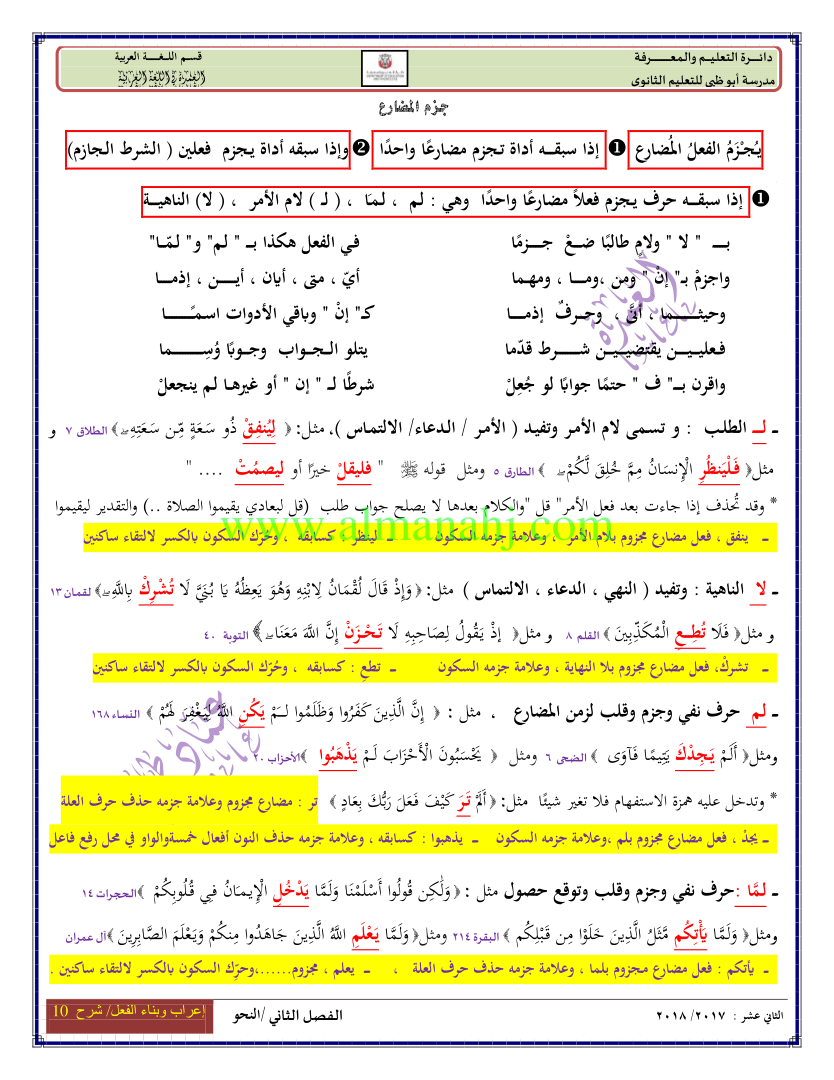 دائـــرة التعليــم والمعـــــرفة
قســم اللـغـــة العربية
مدرسة أبو ظبي للتعليم الثانوي
جـزم المضارع
يُجْـزَمُ الفعلُ المُضارع ❶ إذا سبقـــه أداة تـجزم مضارعًا واحدًا ❷ وإذا سبقه أداة يـجزم فعلين ( الشرط الـجازم)
❶ إذا سبقـــه حرف يـجزم فعلاً مضارعًا واحدًا وهي : لم ، لـمّا ، ( لـ ) لام الأمر ، ( لا) الناهيــة
بـــ " لا " ولامٍ طالبًا ضـعْ جـــزمًا في الفعل هكذا بـ " لم" و" لـمّـا"
واجزمْ بـ" إنْ " ومن ،ومـــا ، ومهـما أيّ ، متى ، أيان ، أيـــن ، إذمـــا
وحيثـــــما ، أنَّى ، وحـرفٌ إذمـــا كـ" إنْ " وباقي الأدوات اسمًـــــا
فـعليـــين يقتضيـــين شـــــرط قدّما يتلو الـجـواب وجـوبًا وُسِـــــما
واقرن بــ" ف " حتمًا جوابًا لو جُعِلْ شرطًا لـ " إن " أو غيرها لم ينجعلْ
ـ لــ الطلب : و تسمى لام الأمر وتفيد ( الأمر / الـدعاء/ الالتماس )، مثل: ﴿ لِيُنفِقْ ذُو سَعَةٍ مِّن سَعَتِهِ ﴾ الطلاق ٧ و
مثل﴿ فَلْيَنظُرِ الْإِنسَانُ مِمَّ خُلِقَ لَّكُمْ ﴾ الطارق ٥ ومثل قوله ﷺ " فليقلْ خيرًا أو ليصمُتْ .... "
* وقد تُحذف إذا جاءت بعد فعل الأمر" قل "والكلام بعدها لا يصلح جواب طلب (قل لبعادي يقيموا الصلاة ..) والتقدير ليقيموا
ـ ينفق ، فعل مضارع مجزوم بلام الأمر ، وعلامة جزمه السكون ـ لينظر : كسابقه ، وحُرّك السكون بالكسر لالتقاء ساكنين
www.almanahj.com
ـ لا الناهية : وتفيد ( النهي ، الدعاء ، الالتماس ) مثل: ﴿ وَإِذْ قَالَ لُقْمَانُ لِابْنِهِ وَهُوَ يَعِظُهُ يَا بُنَيَّ لَا تُشْرِكْ بِاللَّهِ ﴾ لقمان ١٣
و مثل﴿ فَلَا تُطِعِ الْمُكَذِّبِينَ ﴾ القلم ٨ و مثل﴿ إِذْ يَقُولُ لِصَاحِبِهِ لَا تَحْـزَنْ إِنَّ اللَّهَ مَعَنَا ﴾ التوبة ٤٠
ـ تشركْ، فعل مضارع مجزوم بلا النهاية ، وعلامة جزمه السكون ـ تطعِ : كسابقه ، وحُرّك السكون بالكسر لالتقاء ساكنين
ـ لم حرف نفي وجزم وقلب لزمن المضارع ، مثل : ﴿ إِنَّ الَّذِينَ كَفَرُوا وَظَلَمُوا لَـمْ يَكُنِ اللَّهُ لِيَغْفِرَ لَهُمْ ﴾ النساء ١٦٨
ومثل﴿ أَلَمْ يَجِدْكَ يَتِيمًا فَآوَى ﴾ الضحى ٦ ومثل ﴿ يَحْسَبُونَ الْأَحْزَابَ لَمْ يَذْهَبُوا ﴾الأحزاب ٢٠
* وتدخل عليه همزة الاستفهام فلا تغير شيئًا مثل: ﴿ أَلَمْ تَرَ كَيْفَ فَعَلَ رَبُّكَ بِعَادٍ ﴾ تر : مضارع مجزوم وعلامة جزمه حذف حرف العلة
ـ يجدْ ، فعل مضارع مجزوم بلم ،وعلامة جزمه السكون ـ يذهبوا : كسابقه ، وعلامة جزمه حذف النون أفعال خمسةوالواو في محل رفع فاعل
ـ لـمَّا :حرف نفي وجزم وقلب وتوقع حصول مثل : ﴿ وَلَٰكِن قُولُوا أَسْلَمْنَا وَلَمَّا يَدْخُلِ الْإِيمَانُ فِي قُلُوبِكُمْ ﴾الحجرات ١٤
ومثل﴿ وَلَمَّا يَأْتِكُم مَّثَلُ الَّذِينَ خَلَوْا مِن قَبْلِكُم ﴾ البقرة ٢١٤ ومثل﴿ وَلَمَّا يَعْلَمِ اللَّهُ الَّذِينَ جَاهَدُوا مِنكُمْ وَيَعْلَمَ الصَّابِرِينَ ﴾آل عمران
ـ يأتكم : فعل مضارع مـجزوم بلما ، وعلامة جزمه حذف حرف العلة ، ـ يعلم ، مجزوم......،وحرّك السكون بالكسر لالتقاء ساكنين .
الثاني عشر : ٢٠١٧/ ٢٠١٨ الفصل الثاني /النحو إعراب وبناء الفعل/ شرح 10